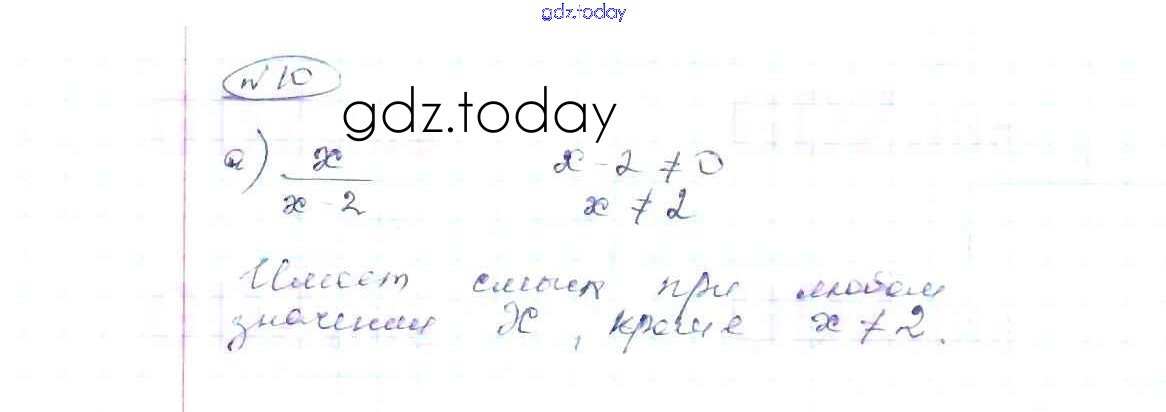 gdz.today
№ 10
gdz.today
а) x / x - 2     x - 2 ≠ 0
x ≠ 2
Имеет смысл при любом
значении x, кроме x ≠ 2.